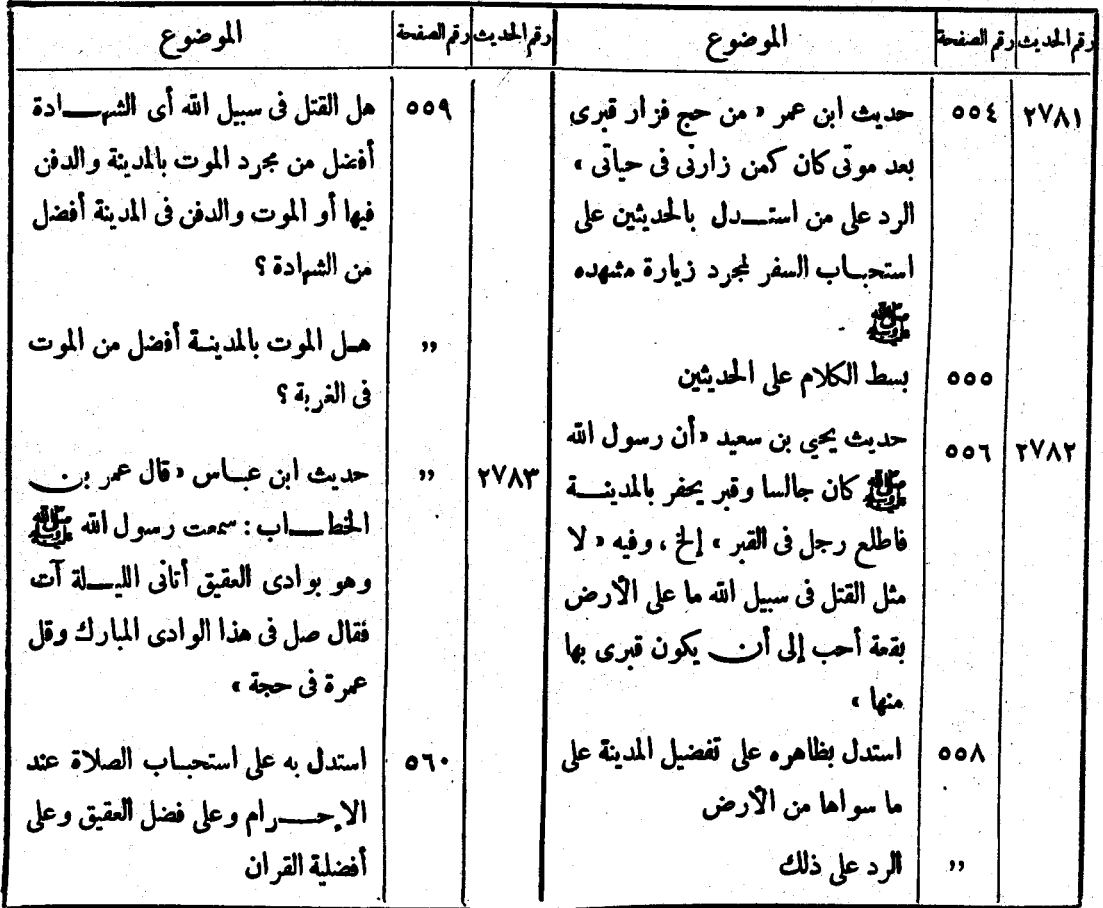 رقم الحديث رقم الصفحة الموضوع
٢٧٨١ ٥٥٤ حديث ابن عمر « من حج فزار قبرى
بعد موتى كان كمن زارنى فى حياتى »
الرد على من استدل بالحديثين على
استحباب السفر لمجرد زيارة مشهده
ﷺ
٥٥٥ بسط الكلام على الحديثين
٢٧٨٢ ٥٥٦ حديث يحيى بن سعيد «أن رسول الله
ﷺ كان جالسا وقبر يحفر بالمدينة
فاطلع رجل فى القبر » إلخ ، وفيه « لا
مثل القتل فى سبيل الله ما على الأرض
بقعة أحب إلى أن يكون قبرى بها
منها »
٥٥٨ استدل بظاهره على تفضيل المدينة على
ما سواها من الأرض
,, الرد على ذلك
رقم الحديث رقم الصفحة الموضوع
٥٥٩ هل القتل فى سبيل الله أى الشهادة
أفضل من مجرد الموت بالمدينة والدفن
فيها أو الموت والدفن فى المدينة أفضل
من الشهادة ؟
,, هل الموت بالمدينة أفضل من الموت
فى الغربة ؟
٢٧٨٣ ,, حديث ابن عباس « قال عمر بن
الخطاب : سمعت رسول الله ﷺ
وهو بوادى العقيق أتانى الليلة آت
فقال صل فى هذا الوادى المبارك وقل
عمرة فى حجة »
٥٦٠ استدل به على استحباب الصلاة عند
الإحرام وعلى فضل العقيق وعلى
أفضلية القران